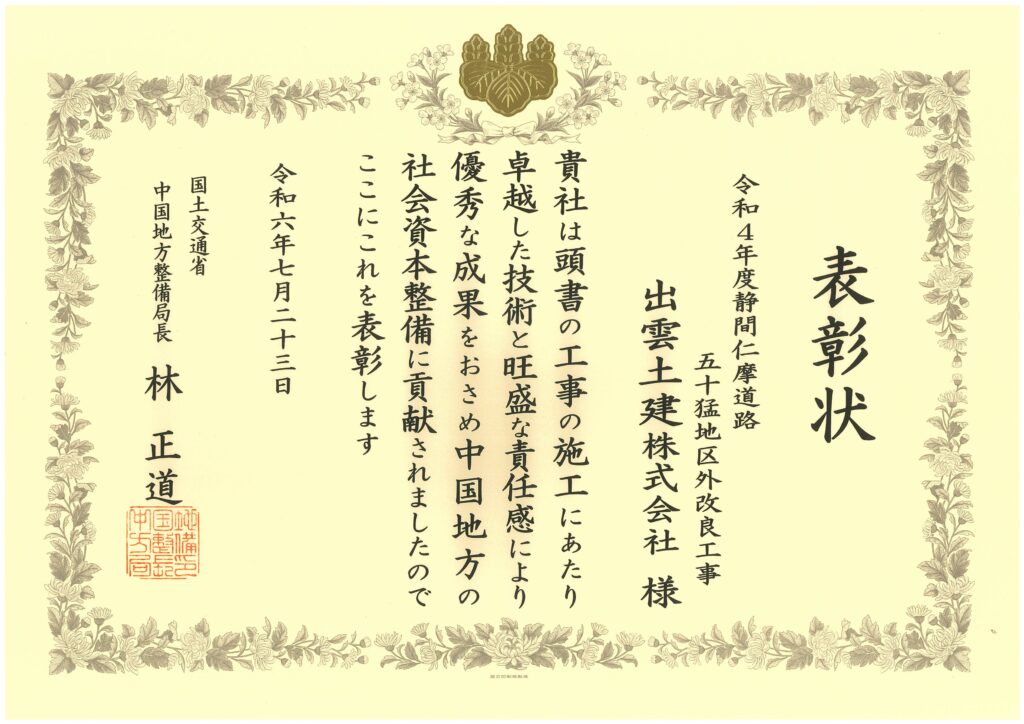 表彰状
令和４年度静間仁摩道路
五十猛地区外改良工事
出雲土建株式会社 様
貴社は頭書の工事の施工にあたり
卓越した技術と旺盛な責任感により
優秀な成果をおさめ中国地方の
社会資本整備に貢献されましたので
ここにこれを表彰します
令和六年七月二十三日
国土交通省
中国地方整備局長 林 正道